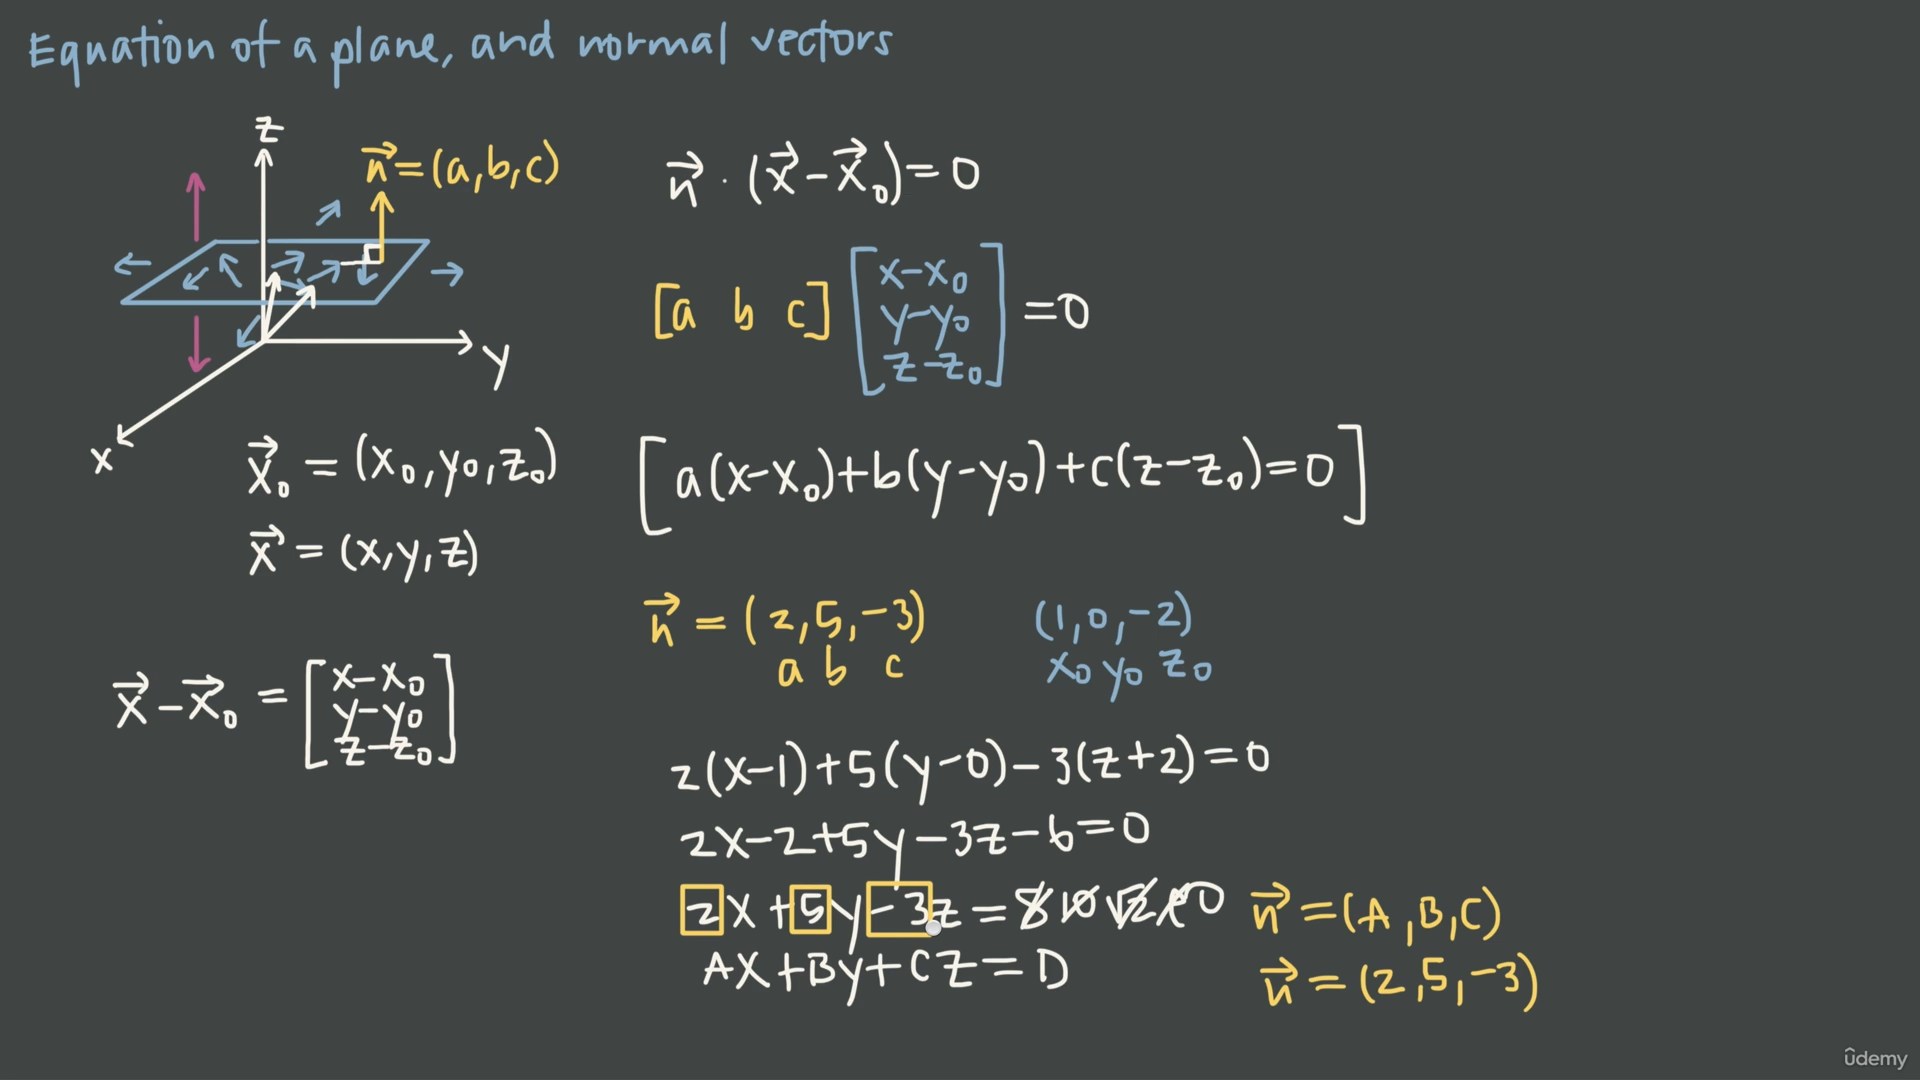 Equation of a plane, and normal vectors
z
n⃗=(a,b,c)
y
x
x⃗₀ = (x₀,y₀,z₀)
x⃗ = (x,y,z)
x⃗-x⃗₀ = [x-x₀
y-y₀
z-z₀]
n⃗ · (x⃗-x⃗₀)=0
[a b c] [x-x₀
y-y₀
z-z₀] =0
[a(x-x₀)+b(y-y₀)+c(z-z₀)=0]
n⃗ = (2,5,-3)
a b c
(1,0,-2)
x₀ y₀ z₀
2(x-1)+5(y-0)-3(z+2)=0
2x-2+5y-3z-6=0
2x+5y-3z = 8 10 0
Ax+By+Cz=D
n⃗=(A,B,C)
n⃗=(2,5,-3)
ûdemy